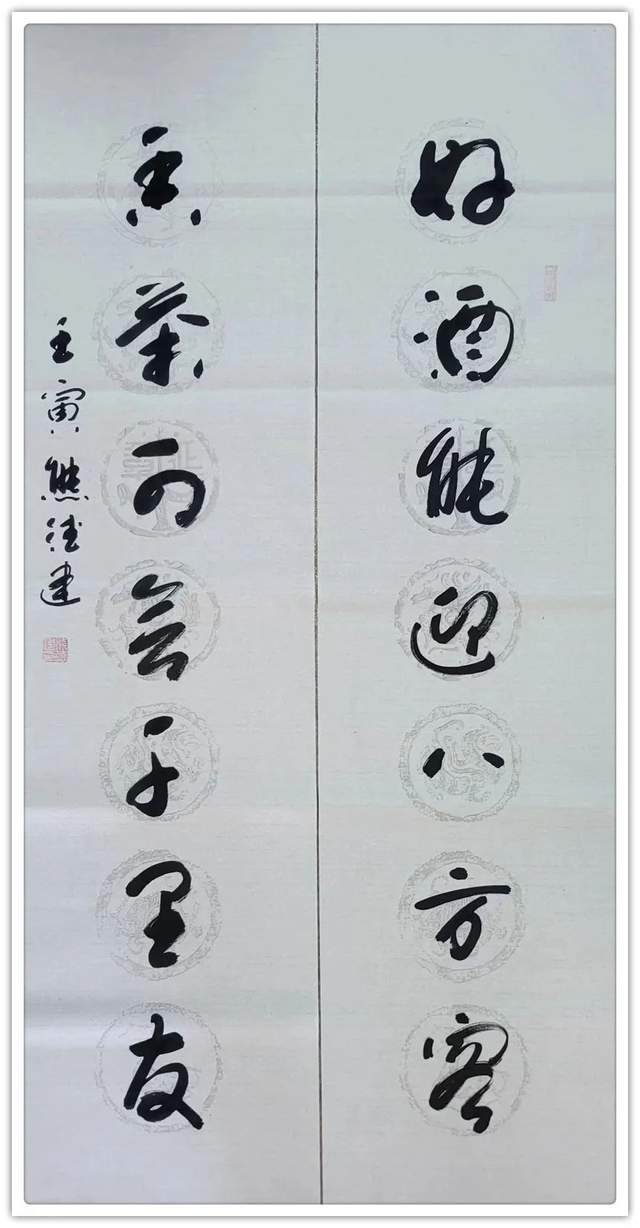 好酒能迎八方客
香茶可会千里友
壬寅熊德建